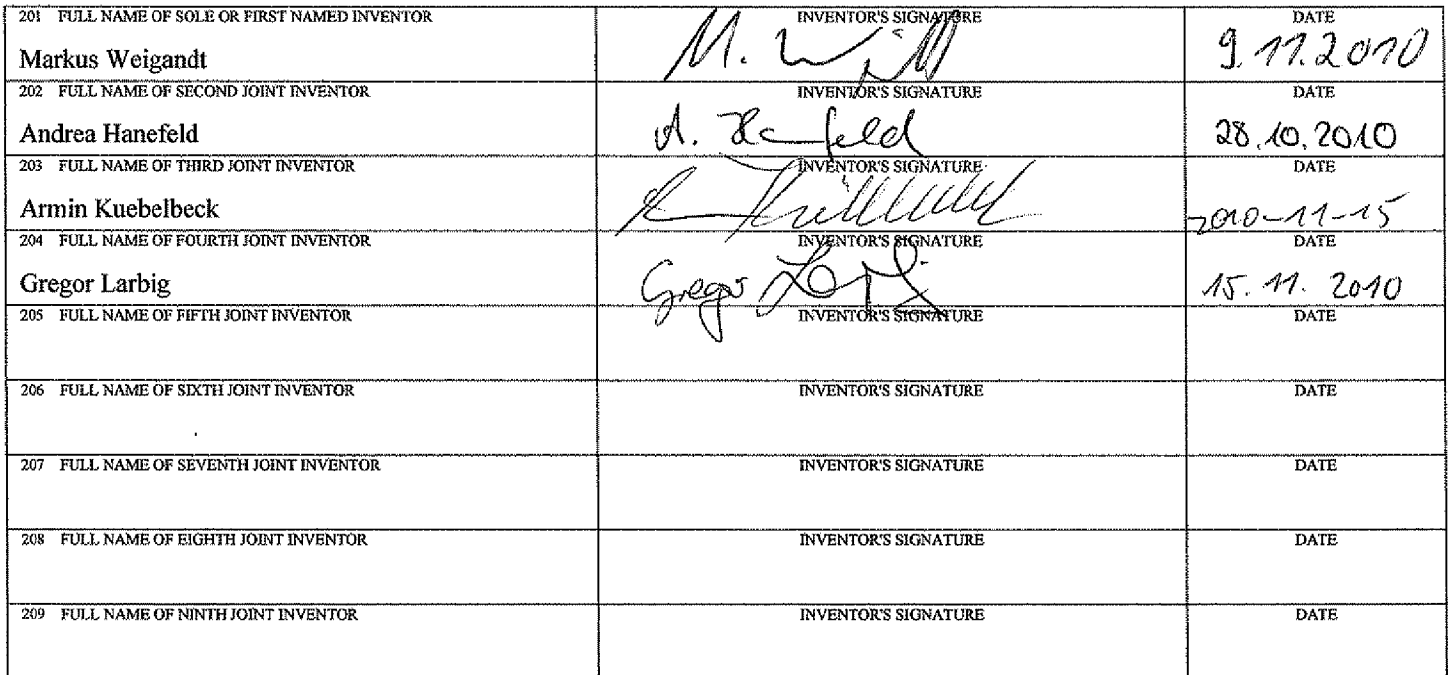 201 FULL NAME OF SOLE OR FIRST NAMED INVENTOR INVENTOR'S SIGNATURE DATE
Markus Weigandt M. 9.11.2010
202 FULL NAME OF SECOND JOINT INVENTOR INVENTOR'S SIGNATURE DATE
Andrea Hanefeld A. Hanefeld 28.10.2010
203 FULL NAME OF THIRD JOINT INVENTOR INVENTOR'S SIGNATURE DATE
Armin Kuebelbeck 2010-11-15
204 FULL NAME OF FOURTH JOINT INVENTOR INVENTOR'S SIGNATURE DATE
Gregor Larbig Gregor 15.11.2010
205 FULL NAME OF FIFTH JOINT INVENTOR INVENTOR'S SIGNATURE DATE
206 FULL NAME OF SIXTH JOINT INVENTOR INVENTOR'S SIGNATURE DATE
207 FULL NAME OF SEVENTH JOINT INVENTOR INVENTOR'S SIGNATURE DATE
208 FULL NAME OF EIGHTH JOINT INVENTOR INVENTOR'S SIGNATURE DATE
209 FULL NAME OF NINTH JOINT INVENTOR INVENTOR'S SIGNATURE DATE